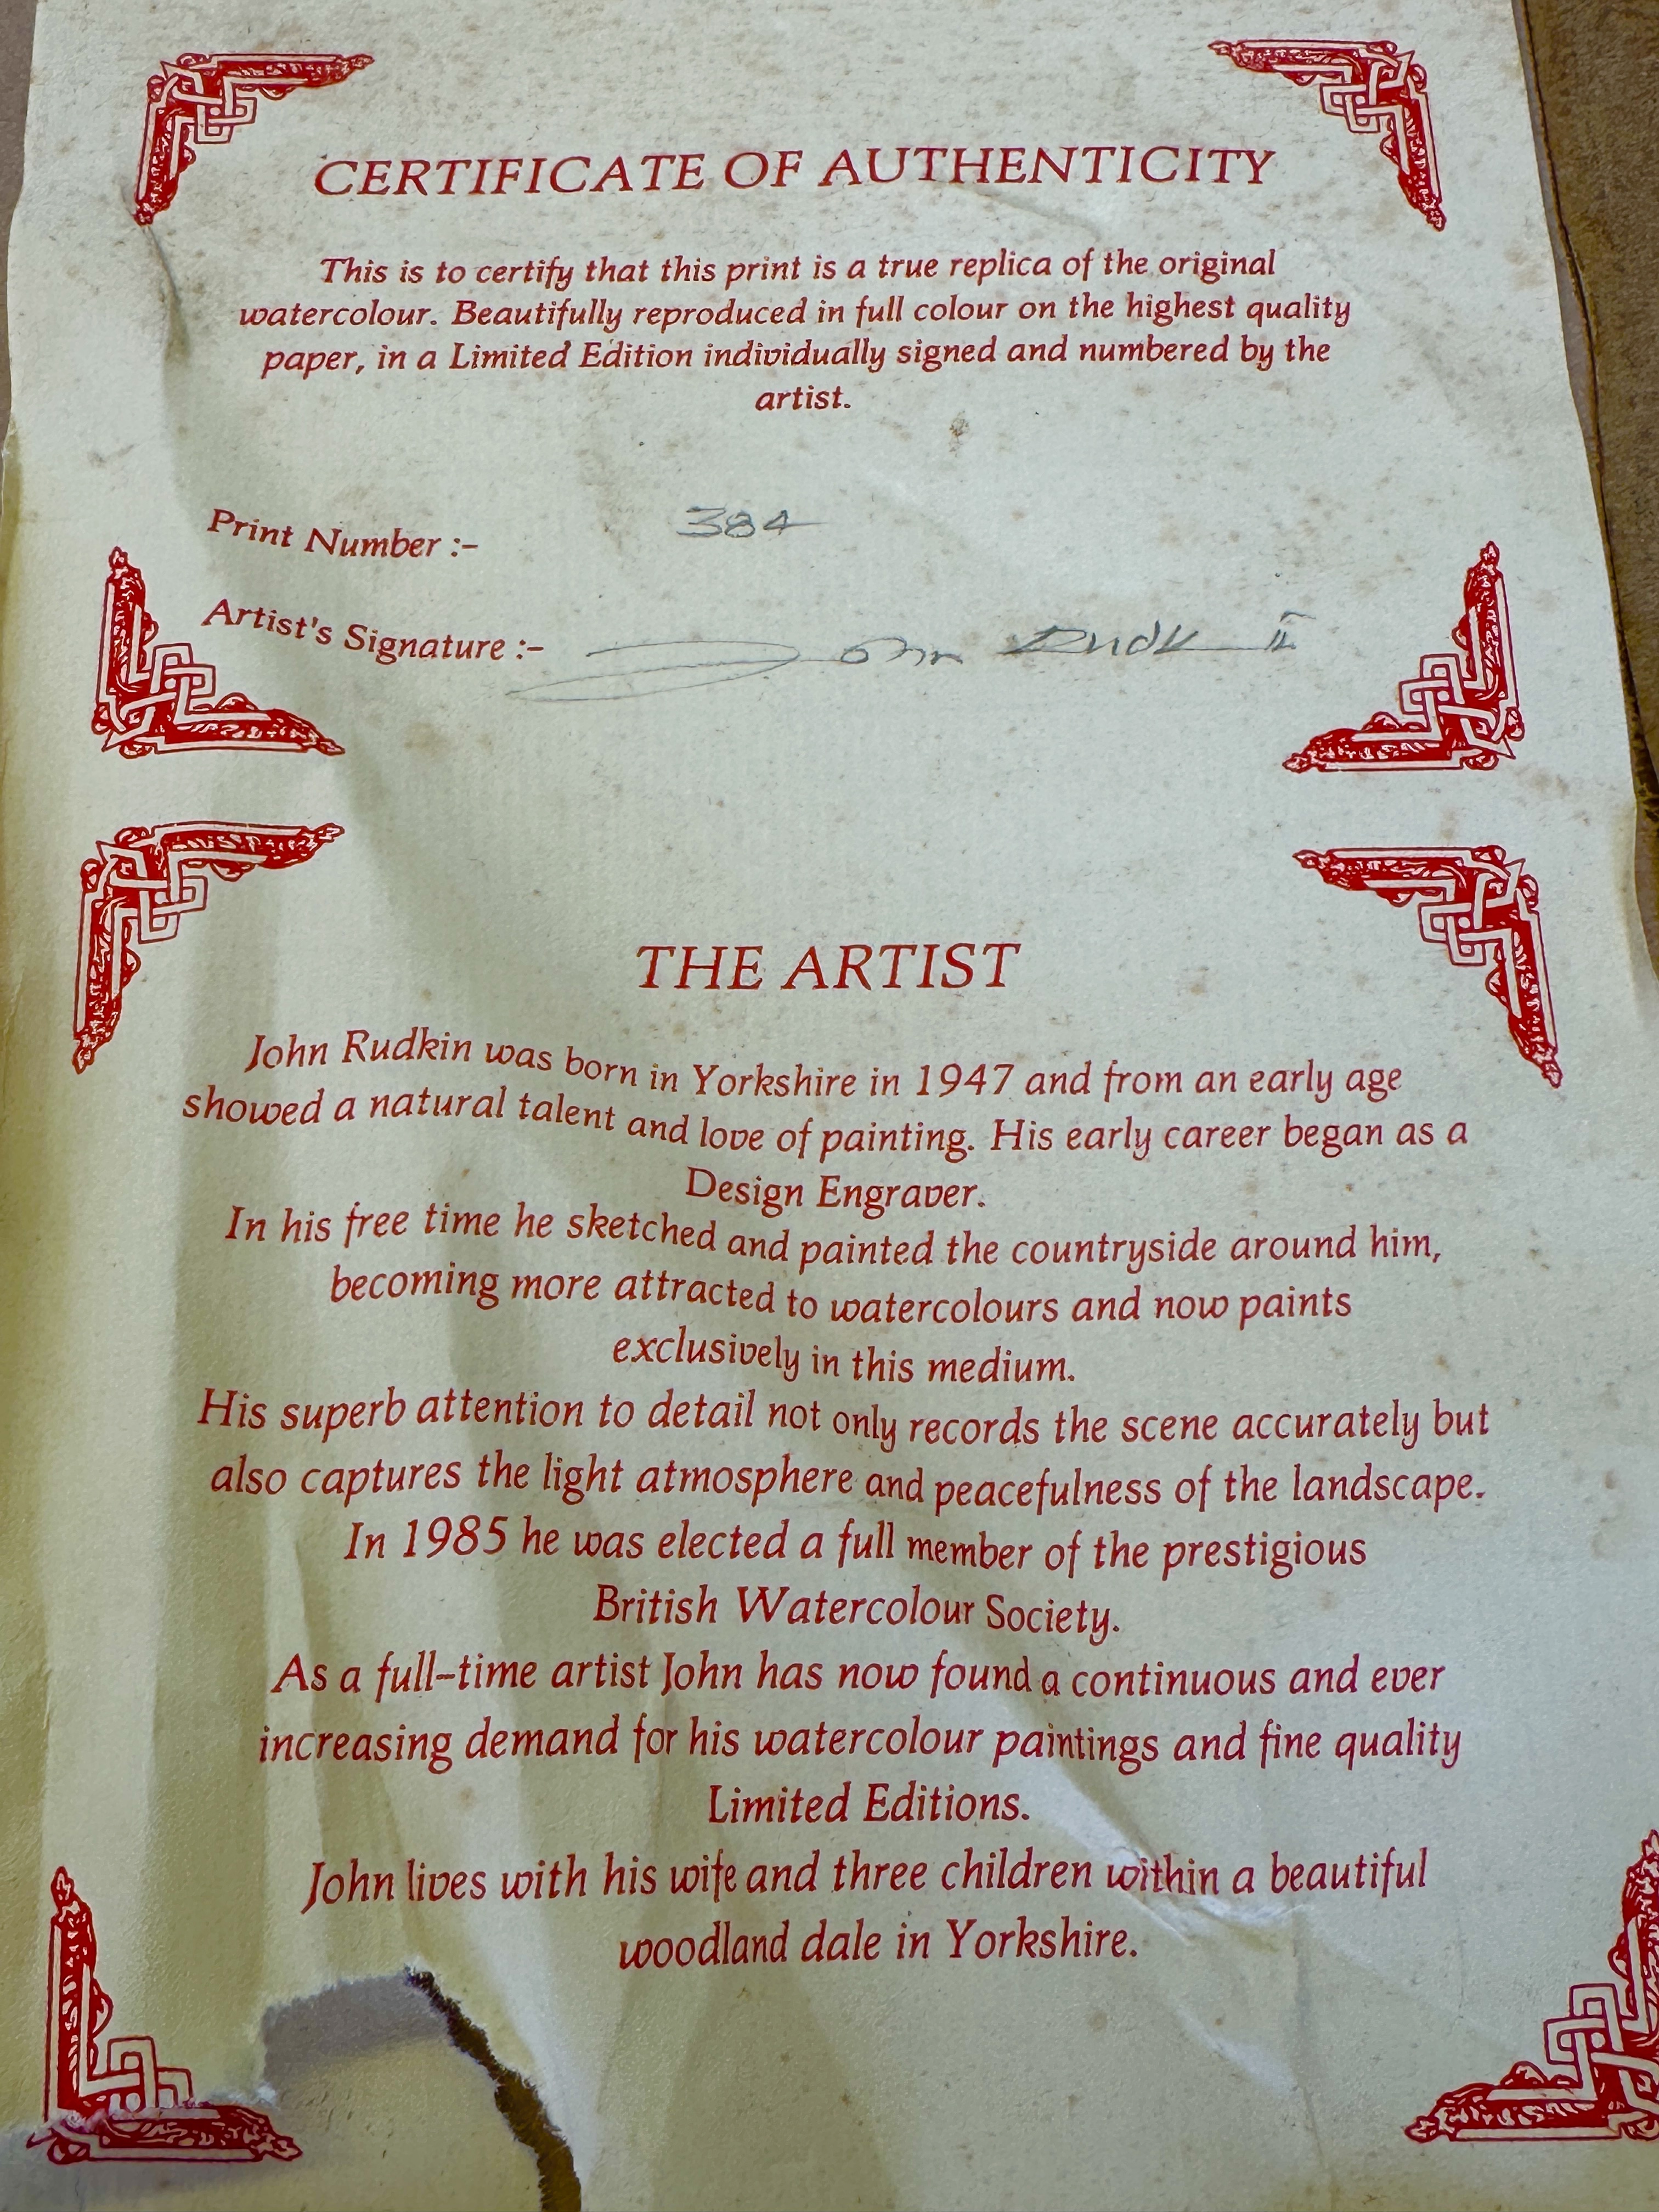 CERTIFICATE OF AUTHENTICITY
This is to certify that this print is a true replica of the original
watercolour. Beautifully reproduced in full colour on the highest quality
paper, in a Limited Edition individually signed and numbered by the
artist.
Print Number :- 384
Artist's Signature :- John Rudk
THE ARTIST
John Rudkin was born in Yorkshire in 1947 and from an early age
showed a natural talent and love of painting. His early career began as a
Design Engraver.
In his free time he sketched and painted the countryside around him,
becoming more attracted to watercolours and now paints
exclusively in this medium.
His superb attention to detail not only records the scene accurately but
also captures the light atmosphere and peacefulness of the landscape.
In 1985 he was elected a full member of the prestigious
British Watercolour Society.
As a full-time artist John has now found a continuous and ever
increasing demand for his watercolour paintings and fine quality
Limited Editions.
John lives with his wife and three children within a beautiful
woodland dale in Yorkshire.